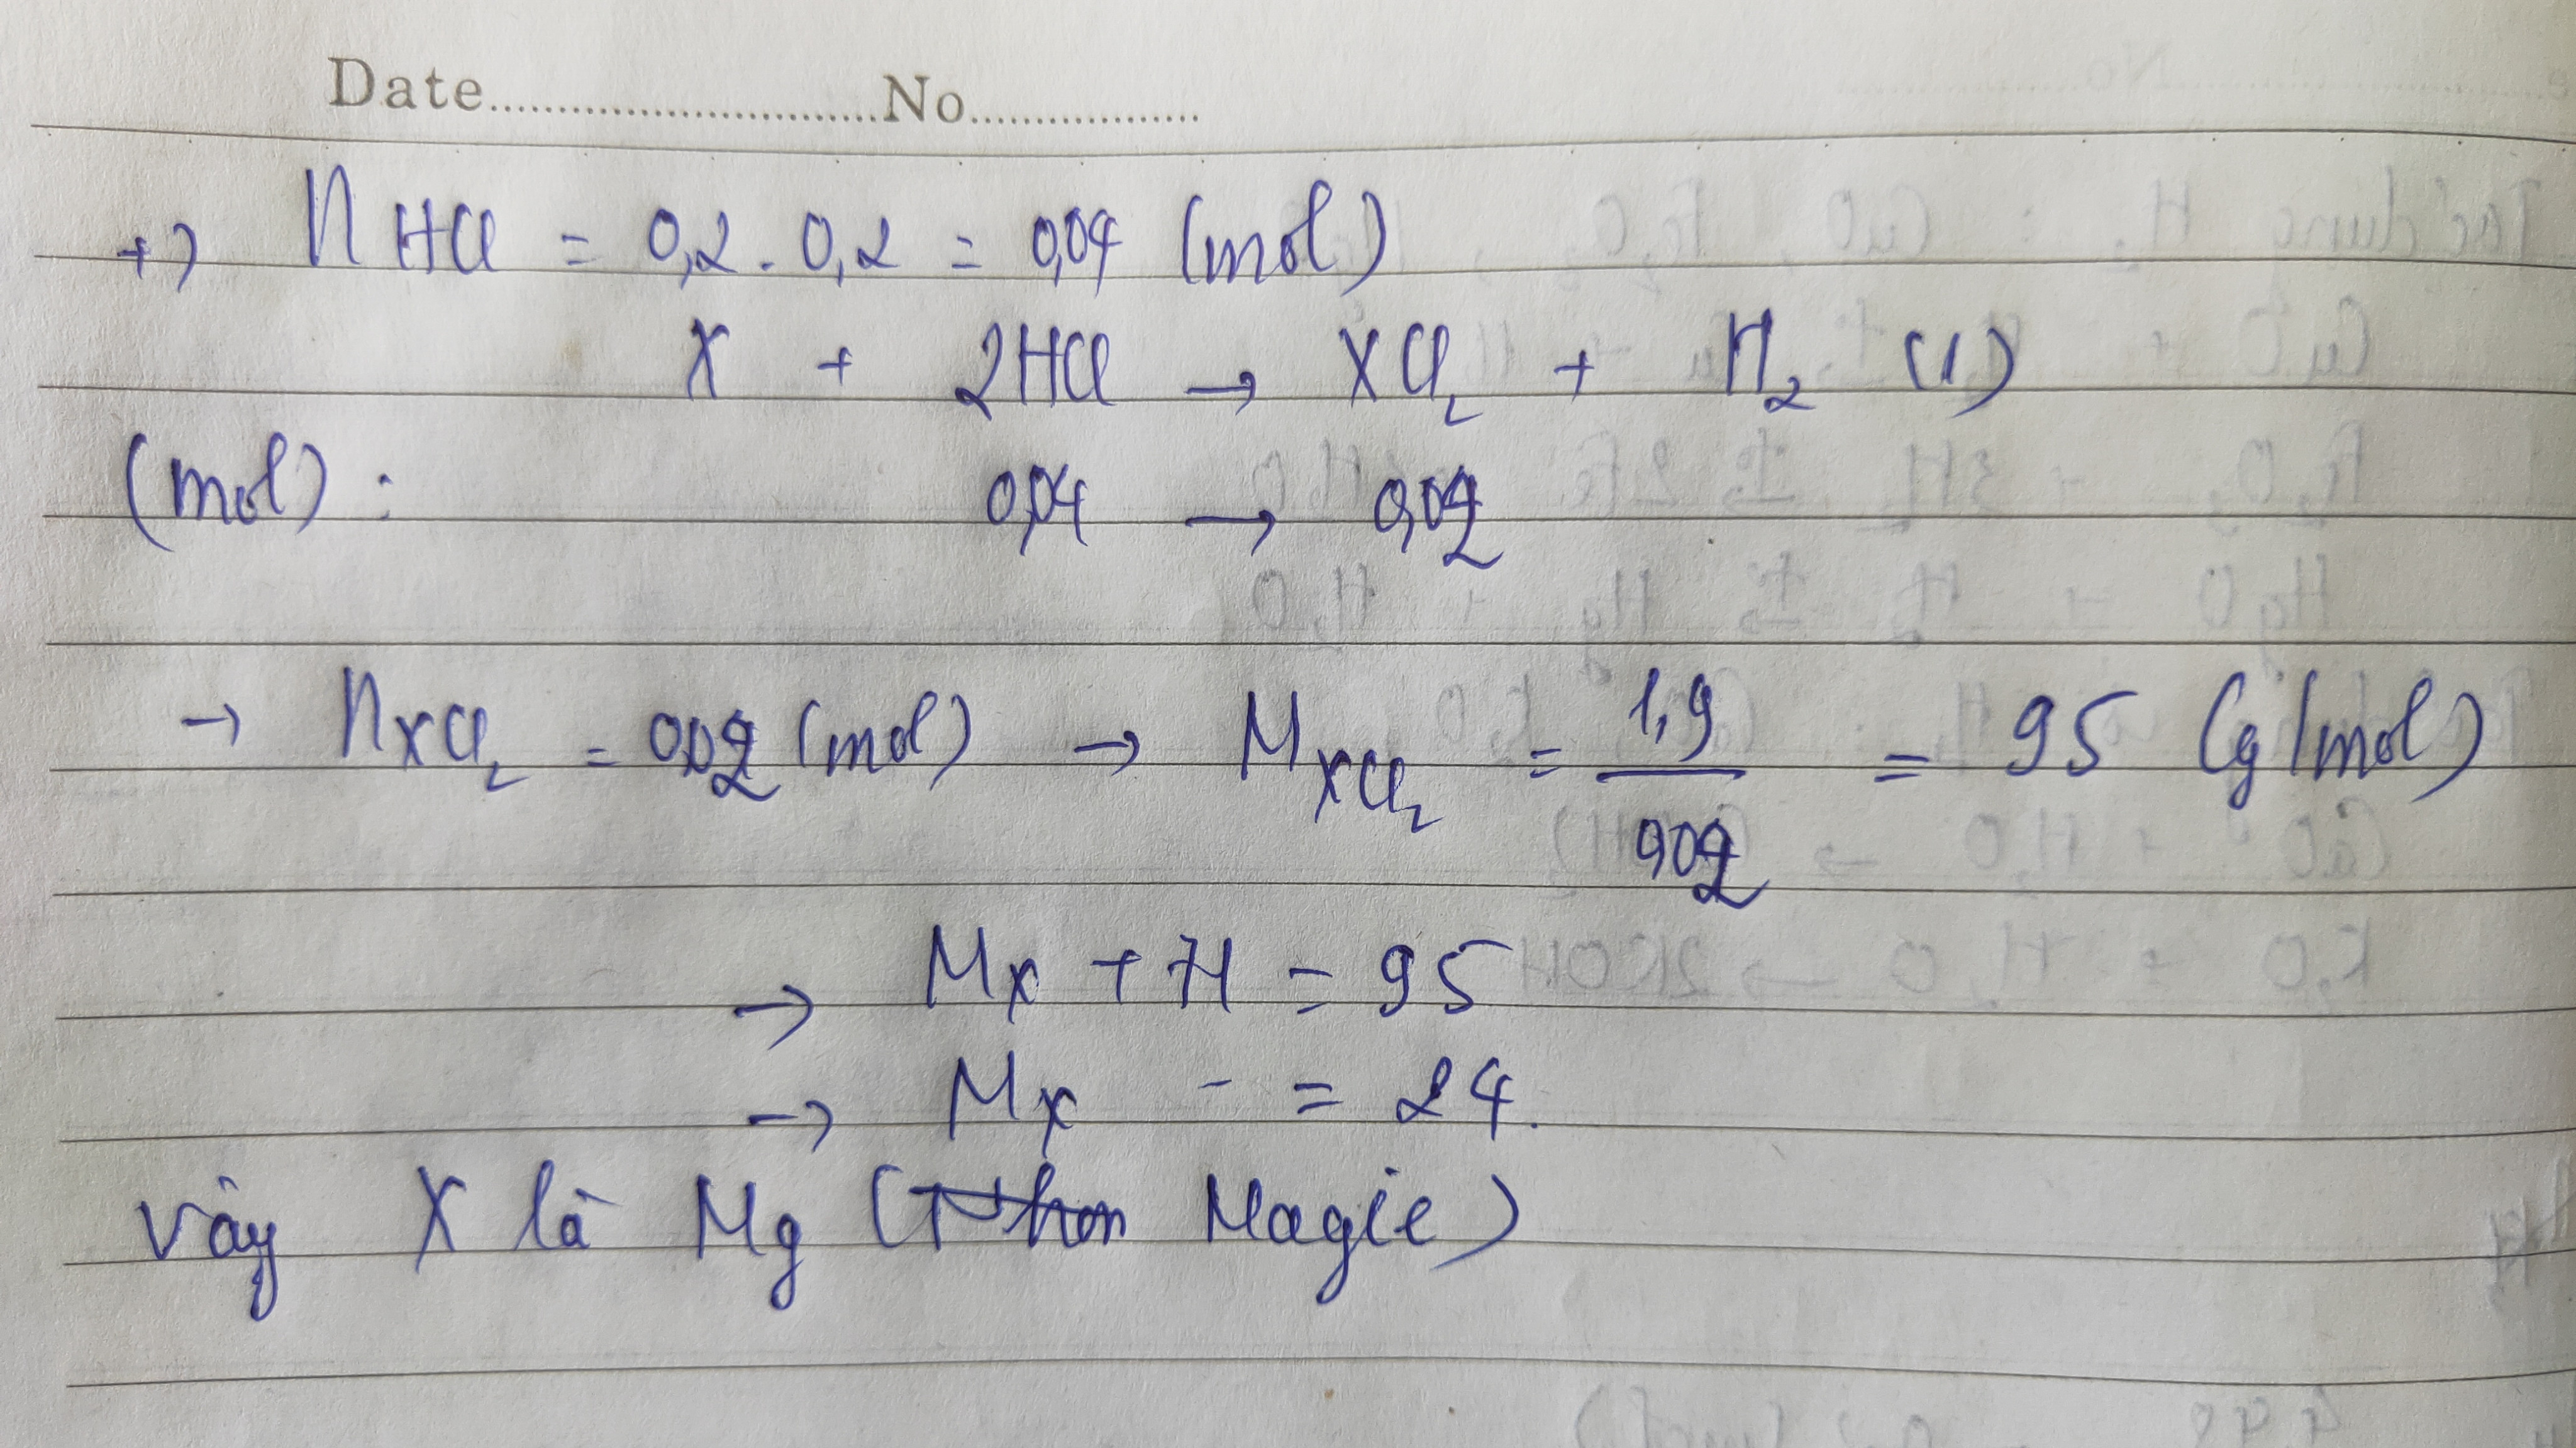 Date..............................No..................
+) nHCl = 0,2 . 0,2 = 0,04 (mol)
X + 2HCl → XCl₂ + H₂ (1)
(mol) : 0,04 → 0,02
→ nXCl₂ = 0,02 (mol) → MXCl₂ = 1,9 / 0,02 = 95 (g/mol)
→ Mx + 71 = 95
→ Mx = 24.
vậy X là Mg (Magie)